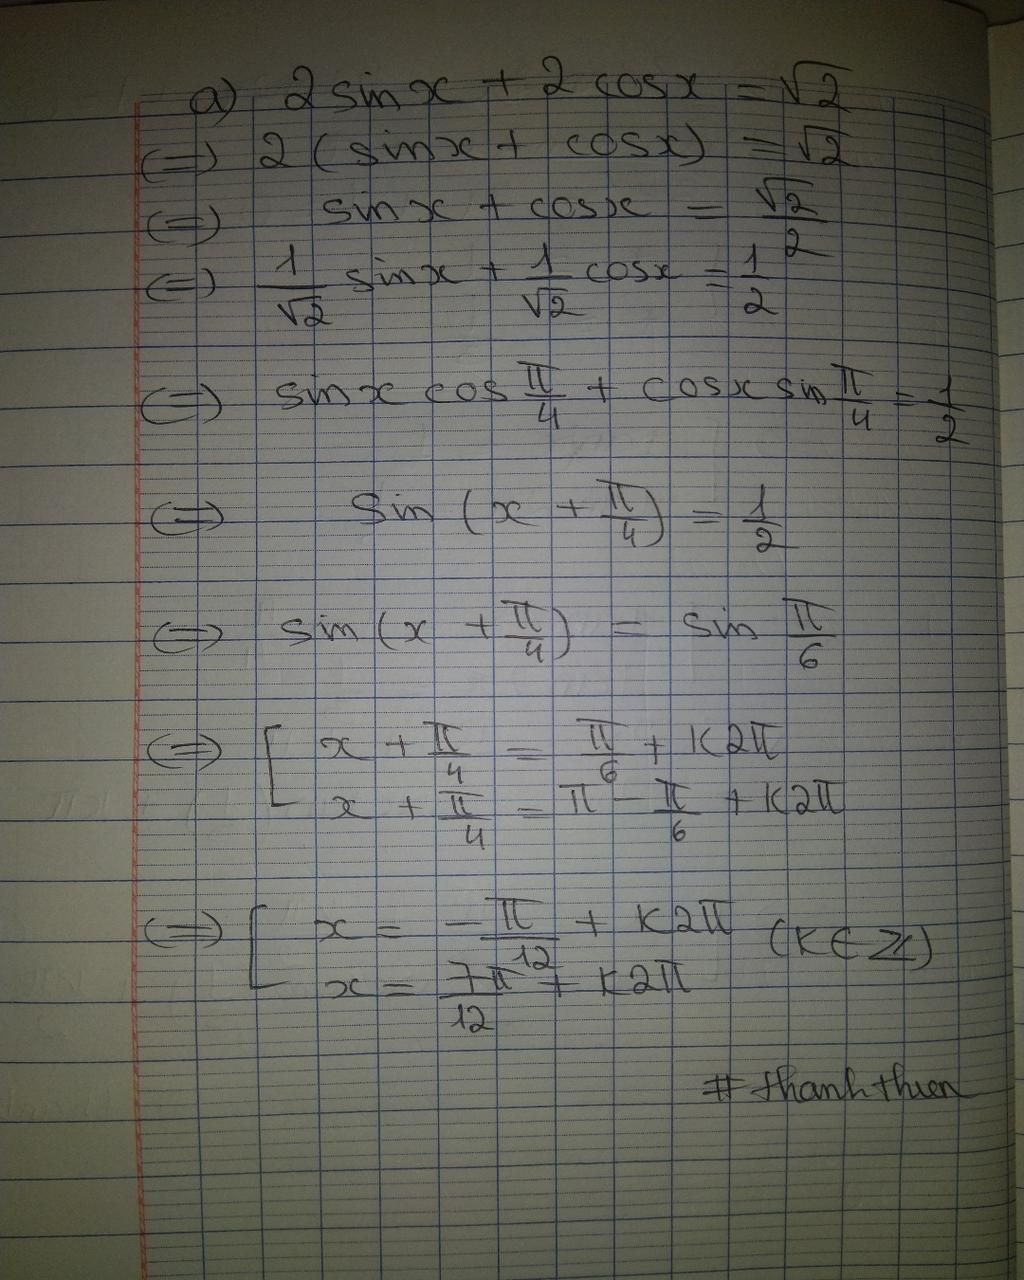 a) 2 sin x + 2 cos x = √2
⇔ 2 (sin x + cos x) = √2
⇔ sin x + cos x = √2/2
⇔ 1/√2 sin x + 1/√2 cos x = 1/2
⇔ sin x cos π/4 + cos x sin π/4 = 1/2
⇔ Sin (x + π/4) = 1/2
⇔ sin (x + π/4) = sin π/6
⇔ [ x + π/4 = π/6 + K2π
x + π/4 = π - π/6 + K2π
⇔ [ x = -π/12 + K2π (K ∈ Z)
x = 7π/12 + K2π
# thanhthuen